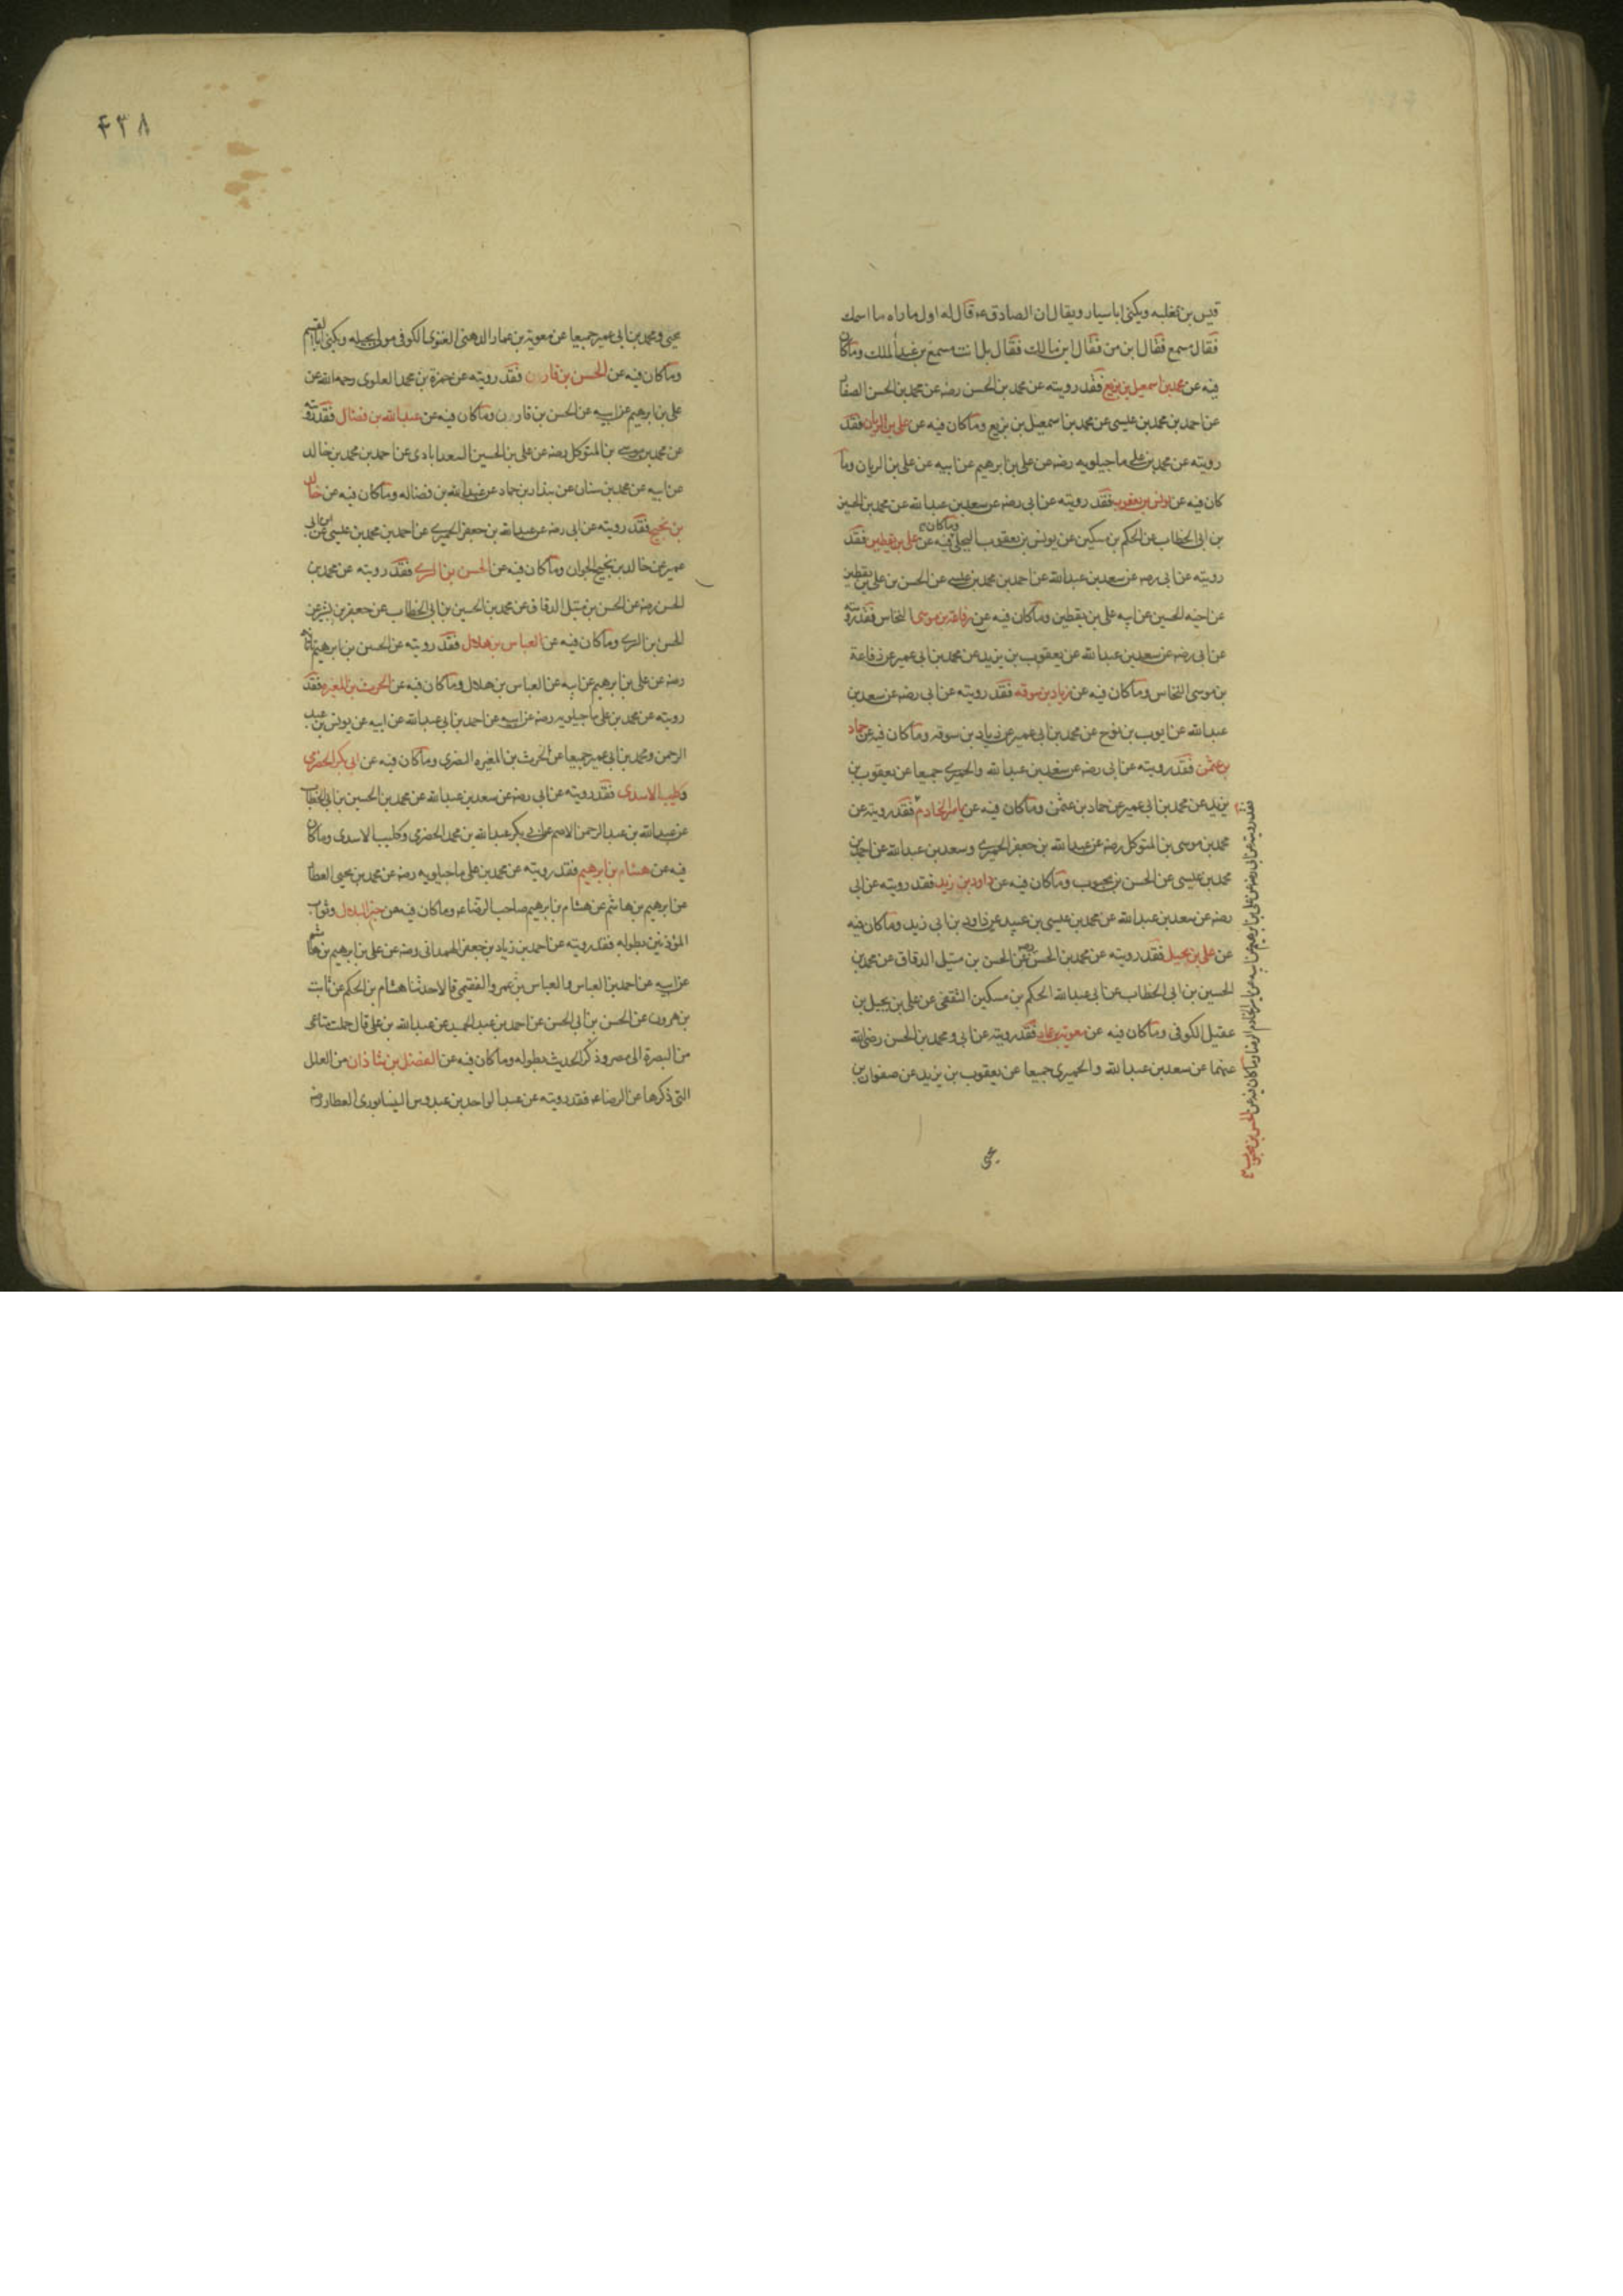 قيس بن ثعلبه ويكنى اباسيار ويقال ان الصادق ع قال له اول ما راه ما اسمك
فقال مسمع فقال ابن من فقال ابن مالك فقال بل انت مسمع بن عبدالملك وما كان
فيه عن محمد بن اسمعيل بن بزيع فقد رويته عن محمد بن الحسن رضه عن محمد بن الحسن الصفار
عن احمد بن محمد بن عيسى عن محمد بن اسمعيل بن بزيع وما كان فيه عن على بن الريان فقد
رويته عن محمد بن على ماجيلويه رضه عن على بن ابرهيم عن ابيه عن على بن الريان وما
كان فيه عن يونس بن يعقوب فقد رويته عن ابى رضه عن سعد بن عبدالله عن محمد بن الحسين
بن ابى الخطاب عن الحكم بن مسكين عن يونس بن يعقوب البجلى وما كان فيه عن على بن يقطين فقد
رويته عن ابى رضه عن سعد بن عبدالله عن احمد بن محمد بن عيسى عن الحسن بن على بن يقطين
عن اخيه الحسين عن ابيه على بن يقطين وما كان فيه عن رفاعة بن موسى النخاس فقد رويته
عن ابى رضه عن سعد بن عبدالله عن يعقوب بن يزيد عن محمد بن ابى عمير عن رفاعة
بن موسى النخاس وما كان فيه عن زياد بن سوقه فقد رويته عن ابى رضه عن سعد بن
عبدالله عن ايوب بن نوح عن محمد بن ابى عمير عن زياد بن سوقه وما كان فيه عن حماد
بن عثمن فقد رويته عن ابى رضه عن سعد بن عبدالله والحميرى جميعا عن يعقوب بن
يزيد عن محمد بن ابى عمير عن حماد بن عثمن وما كان فيه عن ياسر الخادم فقد رويته عن
محمد بن موسى بن المتوكل رضه عن عبدالله بن جعفر الحميرى وسعد بن عبدالله عن احمد بن
محمد بن عيسى عن الحسن بن محبوب وما كان فيه عن داود بن زيد فقد رويته عن ابى
رضه عن سعد بن عبدالله عن محمد بن عيسى بن عبيد عن داود بن ابى زيد وما كان فيه
عن على بن بجيل فقد رويته عن محمد بن الحسن رضه عن الحسن بن متيل الدقاق عن محمد بن
الحسين بن ابى الخطاب عن ابى عبدالله الحكم بن مسكين الثقفى عن على بن بجيل بن
عقيل الكوفى وما كان فيه عن معوية بن عمار فقد رويته عن ابى ومحمد بن الحسن رضى الله
عنهما عن سعد بن عبدالله والحميرى جميعا عن يعقوب بن يزيد عن صفوان بن
يحيى
فقد رويته عن ابى رضه عن على بن ابرهيم عن ابيه عن ياسر الخادم الرضا وما كان فيه عن الحسن بن محبوب
٤٣٨
يحيى ومحمد بن ابى عمير جميعا عن معوية بن عمار الدهنى الغنوى الكوفى مولى بجيله ويكنى ابا القسم
وما كان فيه عن الحسن بن قارن فقد رويته عن حمزة بن محمد العلوى رحمه الله عن
على بن ابرهيم عن ابيه عن الحسن بن قارن وما كان فيه عن عبدالله بن فضال فقد رويته
عن محمد بن موسى بن المتوكل رضه عن على بن الحسين السعد ابادى عن احمد بن محمد بن خالد
عن ابيه عن محمد بن سنان عن بندار بن حماد عن عبدالله بن فضاله وما كان فيه عن خالد
بن نجيح فقد رويته عن ابى رضه عن عبدالله بن جعفر الحميرى عن احمد بن محمد بن عيسى عن ابن ابى
عمير عن خالد بن نجيح الجوان وما كان فيه عن الحسن بن السرى فقد رويته عن محمد بن
الحسن رضه عن الحسن بن متيل الدقاق عن محمد بن الحسين بن ابى الخطاب عن جعفر بن بشير عن
الحسن بن السرى وما كان فيه عن العباس بن هلال فقد رويته عن الحسين بن ابرهيم تاتانه
رضه عن على بن ابرهيم عن ابيه عن العباس بن هلال وما كان فيه عن الحرث بن المغيره فقد
رويته عن محمد بن على ماجيلويه رضه عن ابيه عن احمد بن ابى عبدالله عن ابيه عن يونس بن عبد
الرحمن ومحمد بن ابى عمير جميعا عن الحرث بن المغيره النصرى وما كان فيه عن ابى بكر الحضرمى
وكليب الاسدى فقد رويته عن ابى رضه عن سعد بن عبدالله عن محمد بن الحسين بن ابى الخطاب
عن عبدالله بن عبدالرحمن الاصم عن ابى بكر عبدالله بن محمد الحضرمى وكليب الاسدى وما كان
فيه عن هشام بن ابرهيم فقد رويته عن محمد بن على ماجيلويه رضه عن محمد بن يحيى العطار
عن ابرهيم بن هاشم عن هشام بن ابرهيم صاحب الرضا ع وما كان فيه من خبر البلال وثواب
المؤذنين بطوله فقد رويته عن احمد بن زياد بن جعفر الهمدانى رضه عن على بن ابرهيم بن هاشم
عن ابيه عن احمد بن العباس والعباس بن عمرو الفقيمى قالا حدثنا هشام بن الحكم عن ثابت
بن هرون عن الحسن بن ابى الحسن عن احمد بن عبدالحميد عن عبدالله بن على قال حملت متاعى
من البصرة الى مصر وذكر الحديث بطوله وما كان فيه عن الفضل بن شاذان من العلل
التى ذكرها عن الرضا ع فقد رويته عن عبدالواحد بن عبدوس النيسابورى العطار رضه